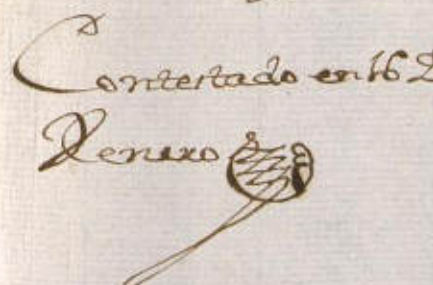 Contestado en 16 D
Henero